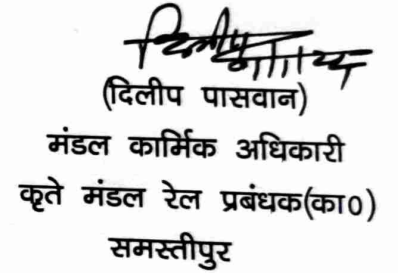 (दिलीप पासवान)
मंडल कार्मिक अधिकारी
कृते मंडल रेल प्रबंधक(का०)
समस्तीपुर